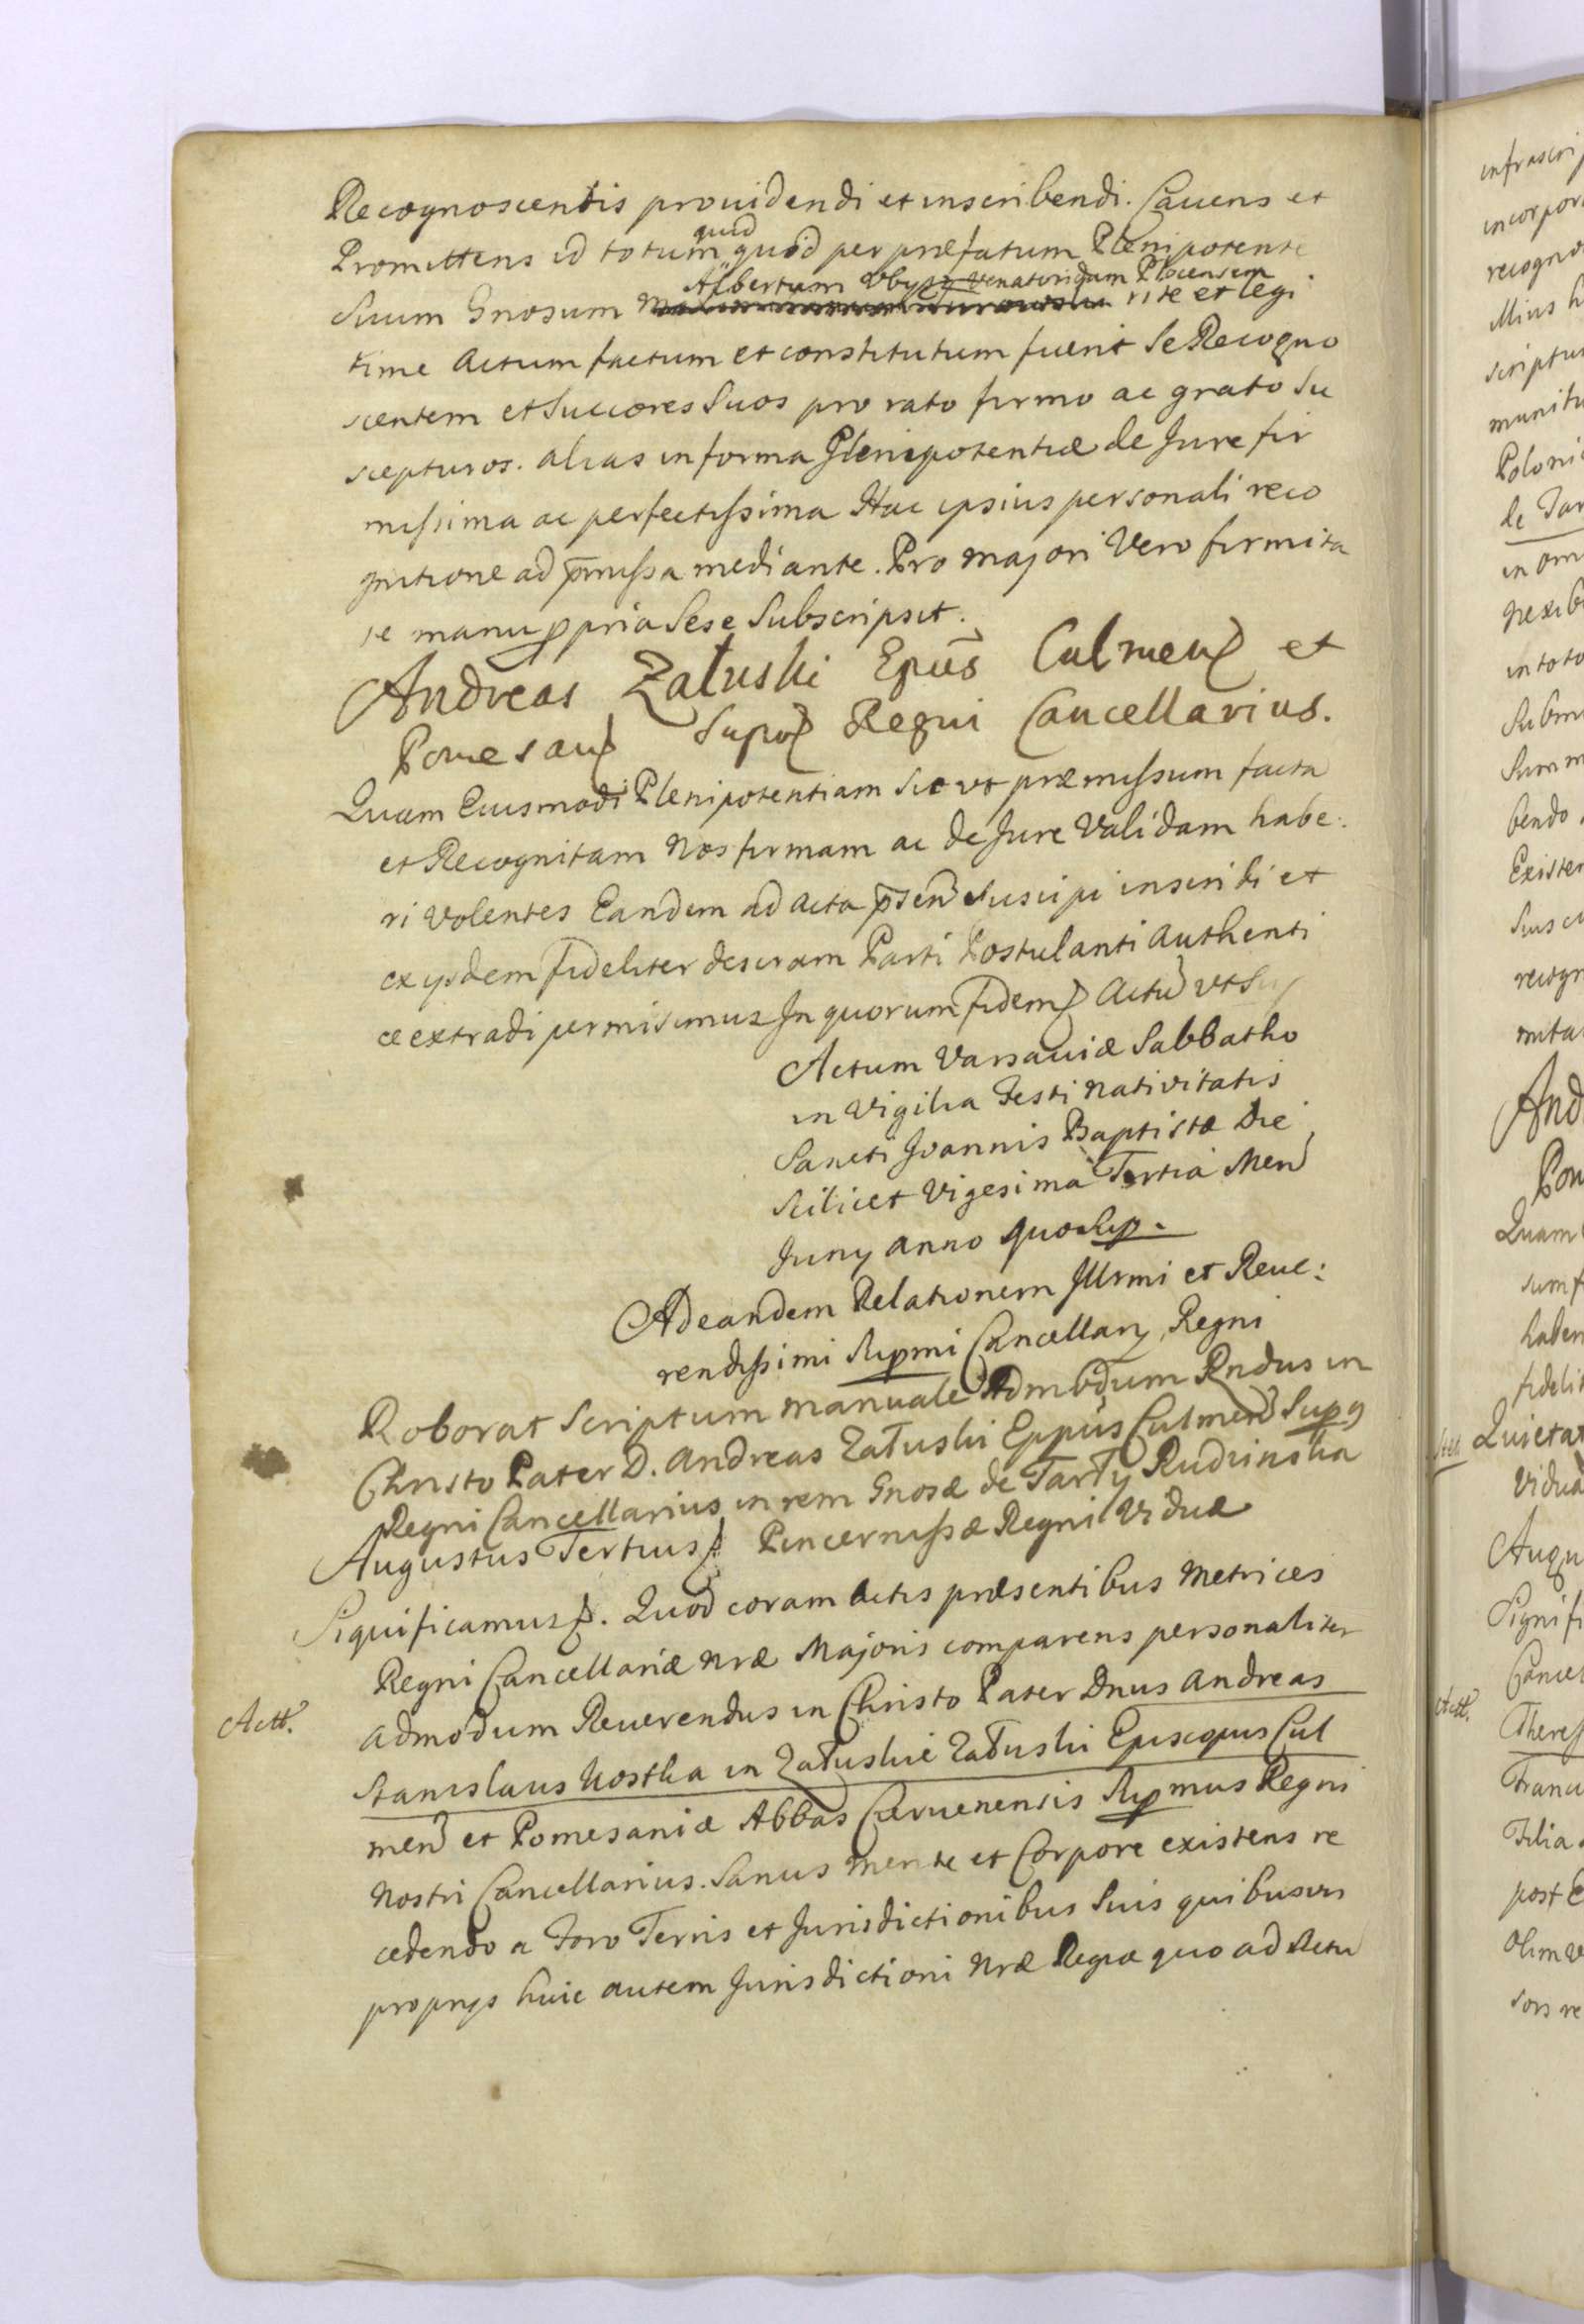 Recognoscentis prouidendi et inscribendi. Cauens et
quid
Promittens id totum quod per præfatum Plenipotente
Albertum Venatoridam Plocensem
Suum Gnosum rite et legi
time Actum factum et constitutum fuerit Se Recogno
scentem et Succores Suos pro rato firmo ac grato Su
scepturos. alias in forma Plenipotentiæ de Jure fir
missima ac perfectissima Hac ipsius personali reco
gnitione ad p̄missa mediante. Pro majori Vero firmita
te manu ppria Sese Subscripsit.
Andreas Załuski Epūs Culmen et
Pomesan Supr Regni Cancellarius.
Quam Eiusmodi Plenipotentiam Sic vt præmissum facta
et Recognitam Nos firmam ac de Jure Validam habe:
ri Volentes Eandem ad acta p̄sen Suscipi inscribi et
ex ijsdem fideliter descram Parti Postulanti Authenti
ce extradi permisimus In quorum fidem Actu vt Su
Actum Varsaviæ Sabbatho
in Vigilia Festi Nativitatis
Sancti Joannis Baptistæ Die
Scilicet Vigesima Tertia Men
Juny anno quo Sup.
Ad eandem Relationem Illrmi et Reue:
rendissimi Supmi Cancellary Regni
Roborat Scriptum manuale Admodum Rndus in
Christo Pater D. Andreas Załuski Eppus Culmen Sup
Regni Cancellarius in rem Gnosæ de Tarły Rudzinska
Augustus Tertius Pincernissæ Regni Viduæ
Significamus. Quod coram Actis præsentibus Metrices
Regni Cancellariæ Nræ Majoris comparens personaliter
Actt.
admodum Reuerendus in Christo Pater Dnus Andreas
Stanislaus Kostka in Załuskie Załuski Episcopus Cul
men et Pomesaniæ Abbas Ceruenensis Supmus Regni
Nostri Cancellarius. Sanus mente et Corpore existens re
cedendo a Foro Terris et Jurisdictionibus Suis quibusvis
proprijs huic autem Jurisdictioni Nræ Regiæ quo ad Actu
infrascri
incorpor
recogno
illius h
scriptu
munitu
Poloni
de Tar
in om
nexib
in toto
Submi
Summ
bendo
Exister
Suis
recogn
mita
And
Pom
Quam
sum f
haber
fidelit
Quieta
Vidua
Augu
Signifi
Cancel
Actt.
Theres
Franc
Filia
post E
Olim
sors re